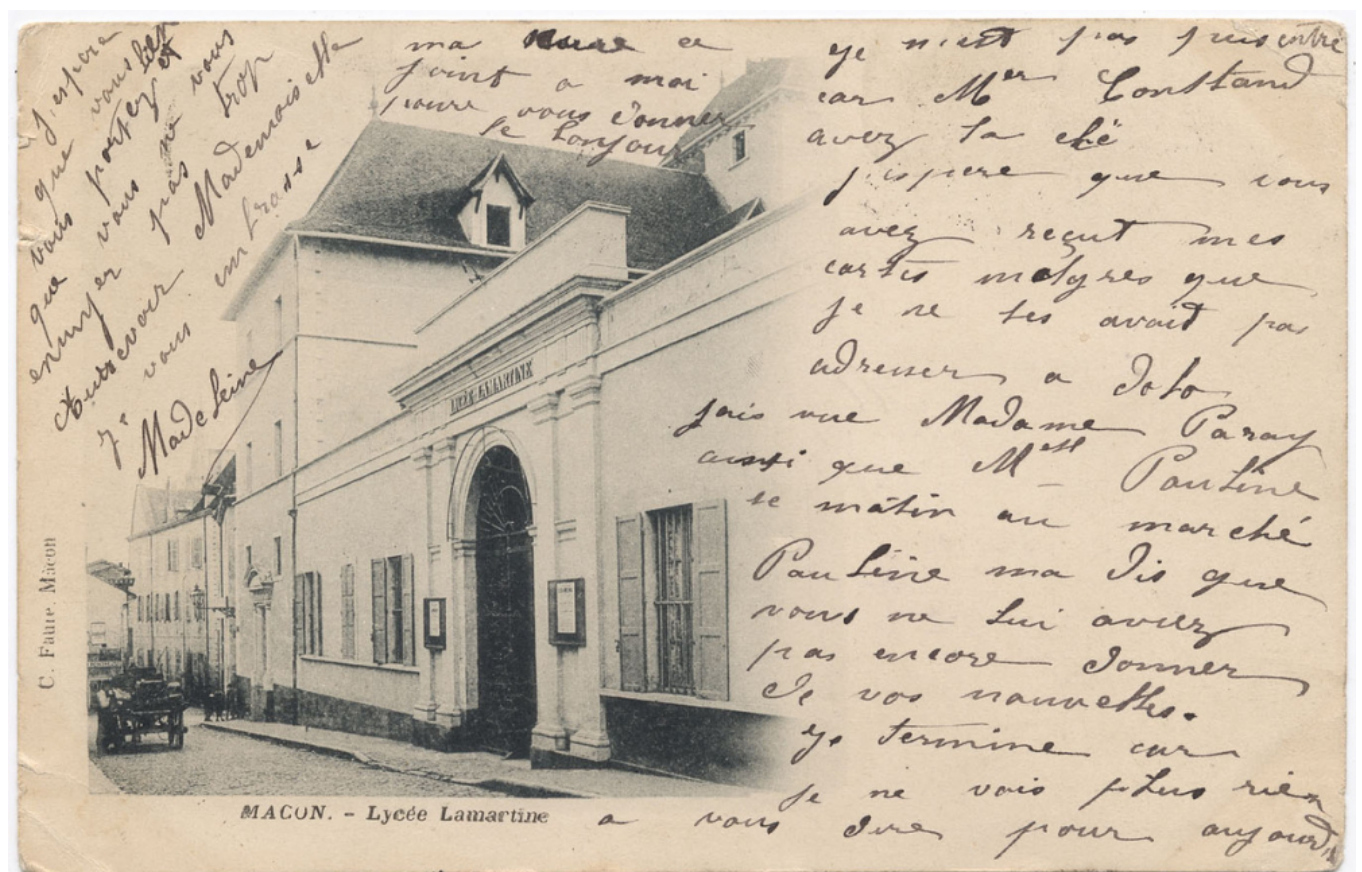 J'espère
que vous
vous portez bien et
que vous ne vous
ennuyer pas trop
Aurevoir Mademoiselle
Je vous embrasse
Madeleine
ma ce
joint a moi
pour vous donner
le bonjour
Je n'est pas puis entre
car Mer Constand
avez la clé
j'espere que vous
avez reçut mes
cartes malgres que
je ne les avait pas
adresser a Dolo
jais vue Madame Paray
aussi que Mell Pauline
le matin au marché
Pauline ma dis que
vous ne lui aviez
pas encore donner
de vos nouvelles.
Je termine car
je ne vois plus rien
a vous dire pour aujourd
LYCÉE LAMARTINE
C. Faure, Macon
MACON. - Lycée Lamartine